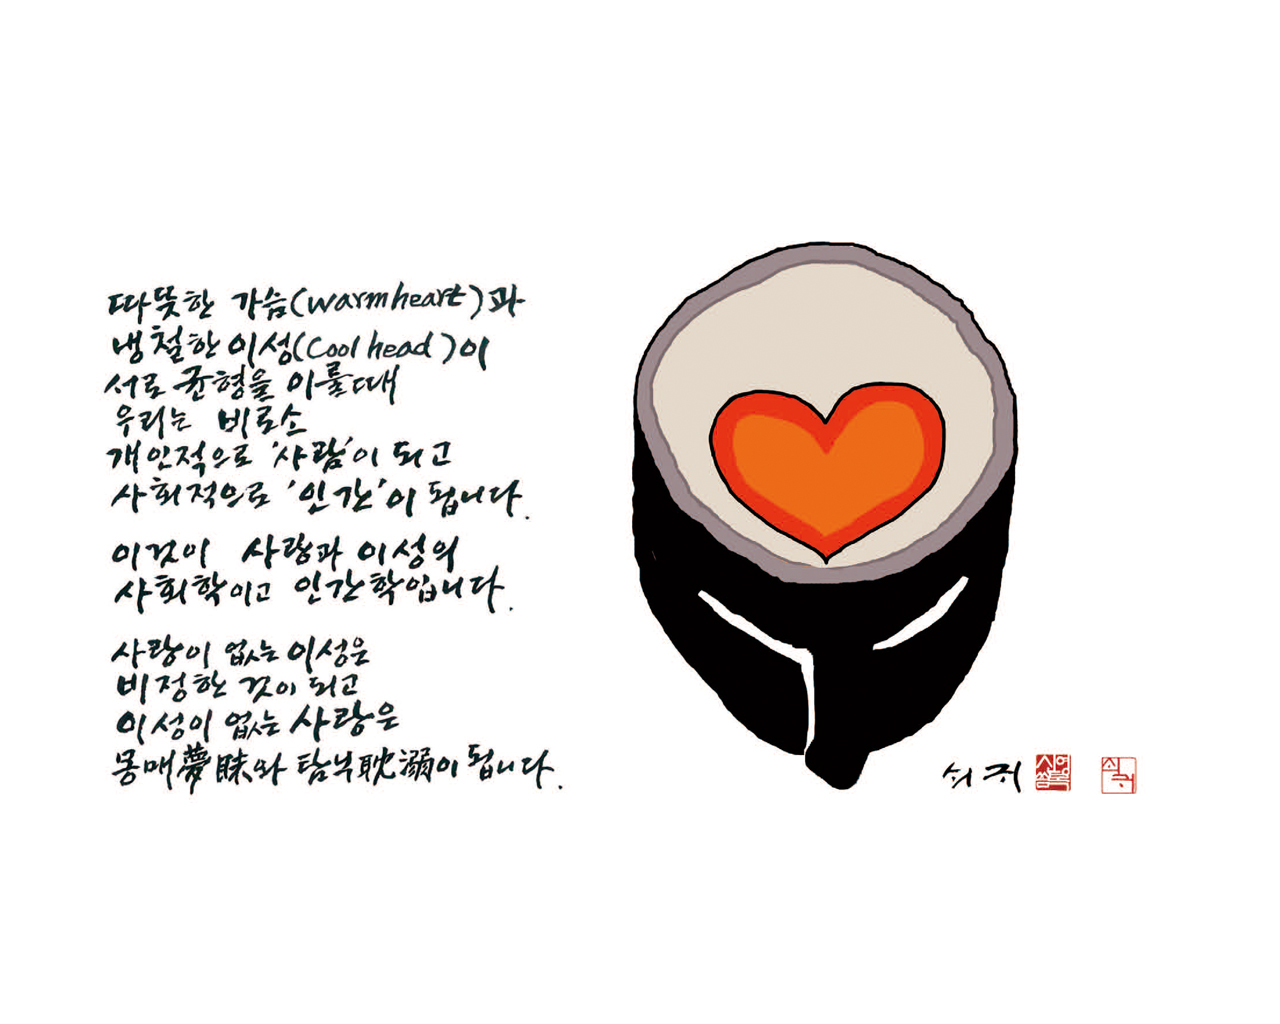 따뜻한 가슴(warm heart)과
냉철한 이성(cool head)이
서로 균형을 이룰 때
우리는 비로소
개인적으로 '사람'이 되고
사회적으로 '인간'이 됩니다.
이것이 사랑과 이성의
사회학이고 인간학입니다.
사랑이 없는 이성은
비정한 것이 되고
이성이 없는 사랑은
몽매夢昧와 탐닉耽溺이 됩니다.
쇠귀